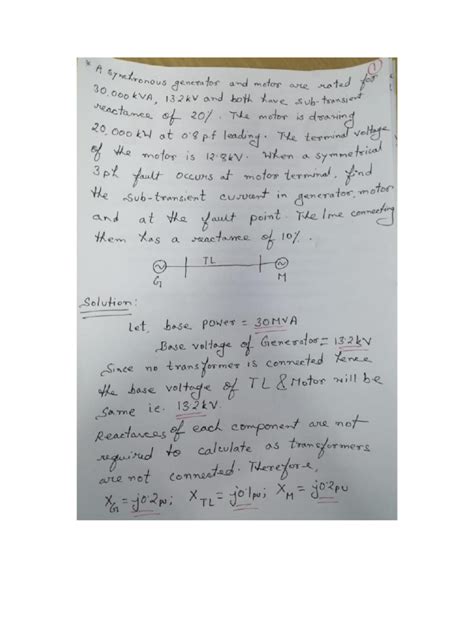 1
* A synchronous generator and motor are rated for
30,000 kVA, 13.2kV and both have sub-transient
reactance of 20%. The motor is drawing
20,000 kW at 0.8 pf leading. The terminal voltage
of the motor is 12.8kV. When a symmetrical
3 ph fault occurs at motor terminal, find
the sub-transient current in generator, motor
and at the fault point. The line connecting
them has a reactance of 10%.
TL
G M
Solution:
Let, base power = 30MVA
Base voltage of Generator = 13.2kV
Since no transformer is connected hence
the base voltage of TL & Motor will be
same ie. 13.2kV.
Reactances of each component are not
required to calculate as transformers
are not connected. Therefore,
X_G = j0.2pu; X_TL = j0.1pu; X_M = j0.2pu